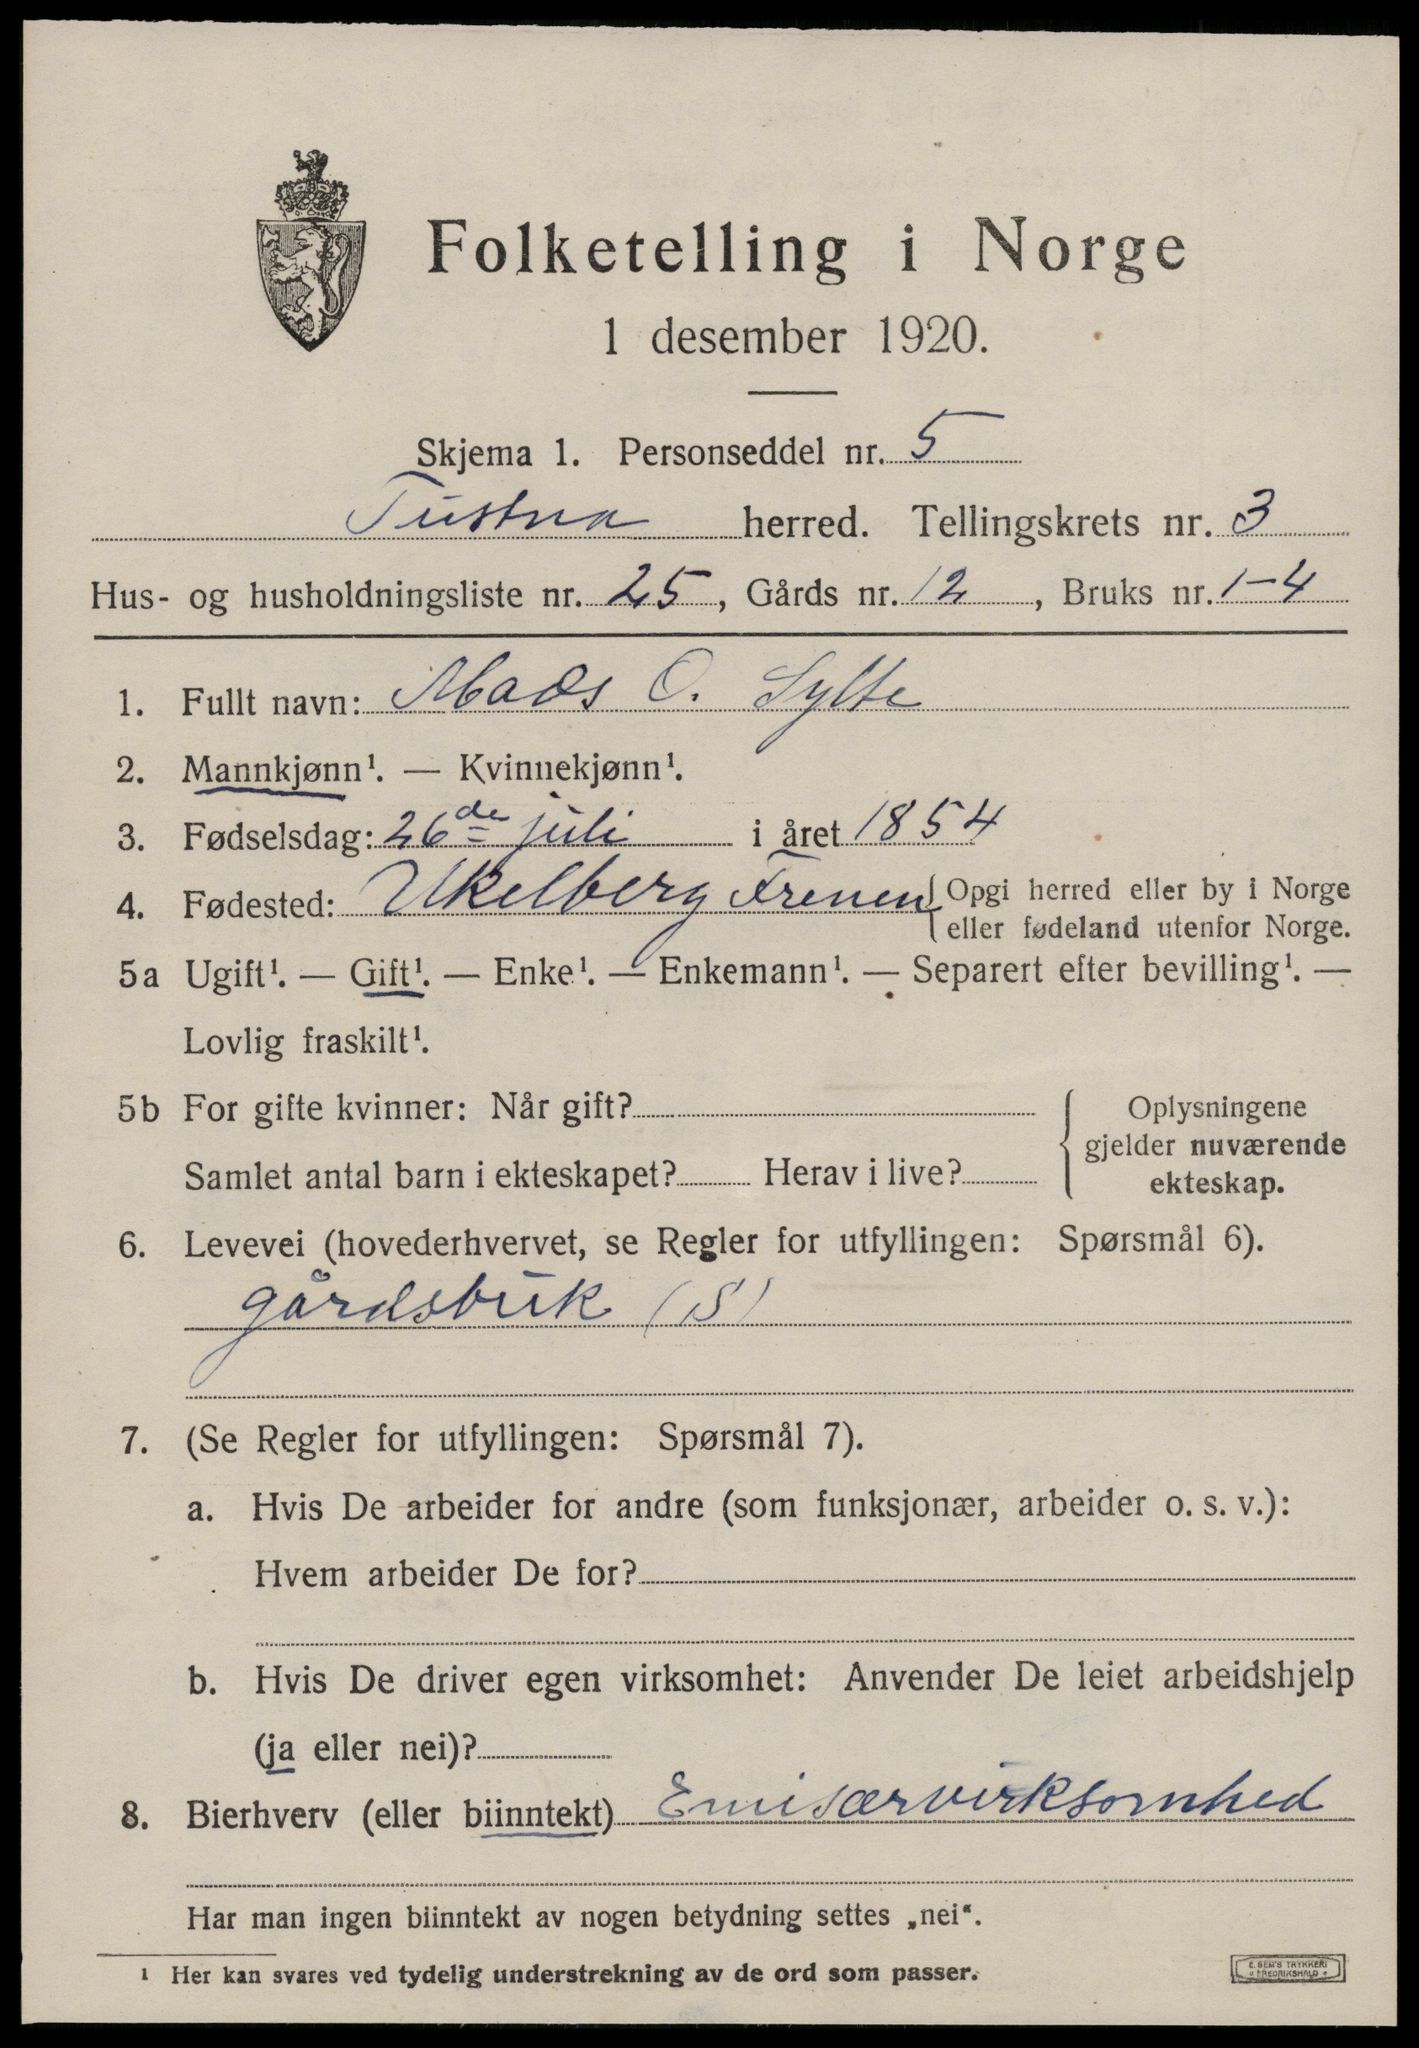 Folketelling i Norge
1 desember 1920.
Skjema 1. Personseddel nr. 5
Tustna herred. Tellingskrets nr. 3
Hus- og husholdningsliste nr. 25, Gårds nr. 12, Bruks nr. 1-4
1. Fullt navn: Mads O. Sylte
2. Mannkjønn¹. — Kvinnekjønn¹.
3. Fødselsdag: 26de juli i året 1854
4. Fødested: Ukelberg Frenen { Opgi herred eller by i Norge
eller fødeland utenfor Norge.
5a Ugift¹. — Gift¹. — Enke¹. — Enkemann¹. — Separert efter bevilling¹. —
Lovlig fraskilt¹.
5b For gifte kvinner: Når gift?
Samlet antal barn i ekteskapet? Herav i live?
Oplysningene
gjelder nuværende
ekteskap.
6. Levevei (hovederhvervet, se Regler for utfyllingen: Spørsmål 6).
gårdsbruk (S)
7. (Se Regler for utfyllingen: Spørsmål 7).
a. Hvis De arbeider for andre (som funksjonær, arbeider o. s. v.):
Hvem arbeider De for?
b. Hvis De driver egen virksomhet: Anvender De leiet arbeidshjelp
(ja eller nei)?
8. Bierhverv (eller biinntekt) Emisærvirksomhed
Har man ingen biinntekt av nogen betydning settes „nei“.
¹ Her kan svares ved tydelig understrekning av de ord som passer.
E. SEM'S TRYKKERI
FREDRIKSHALD